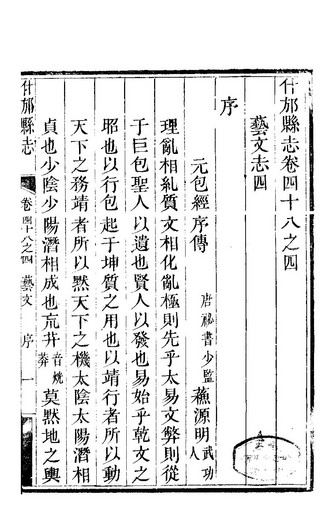 什邡縣志卷四十八之四
藝文志四
序
元包經序傳 唐祕書少監 蘇源明 武功人
理亂相糺質文相化亂極則先乎太易文弊則從
于巨包聖人以遺也賢人以發也易始乎乾文之
昭也以行包起于坤質之用也以靖行者所以動
天下之務靖者所以默天下之機太陰太陽潛相
貞也少陰少陽潛相成也巟井音㡃莽莫默地之輿
什邡縣志 卷四十八之四 藝文 序 一